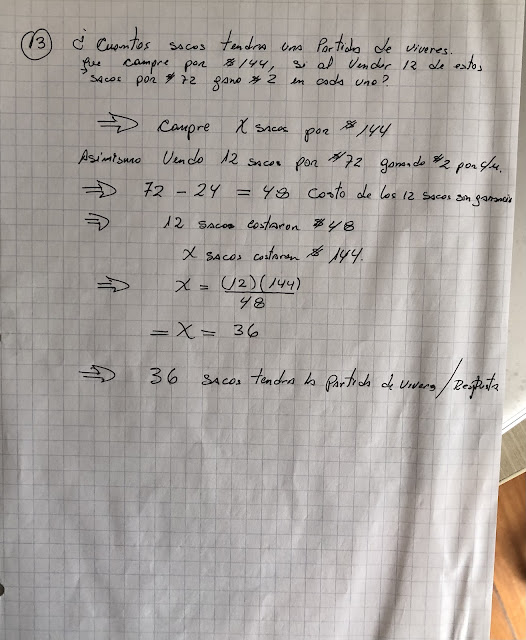 13 ¿ Cuantos sacos tendra una Partida de viveres.
que compre por $144, si al vender 12 de estos
sacos por $72 gano $2 en cada uno?
⇒ Compre X sacos por $144
Asimismo Vendo 12 sacos por $72 ganando $2 por c/u.
⇒ 72 - 24 = 48 Costo de los 12 sacos sin ganancia
⇒ 12 sacos costaron $48
X sacos costaron $144.
⇒ X = (12)(144)
48
= X = 36
⇒ 36 sacos tendra la Partida de viveres / Respuesta